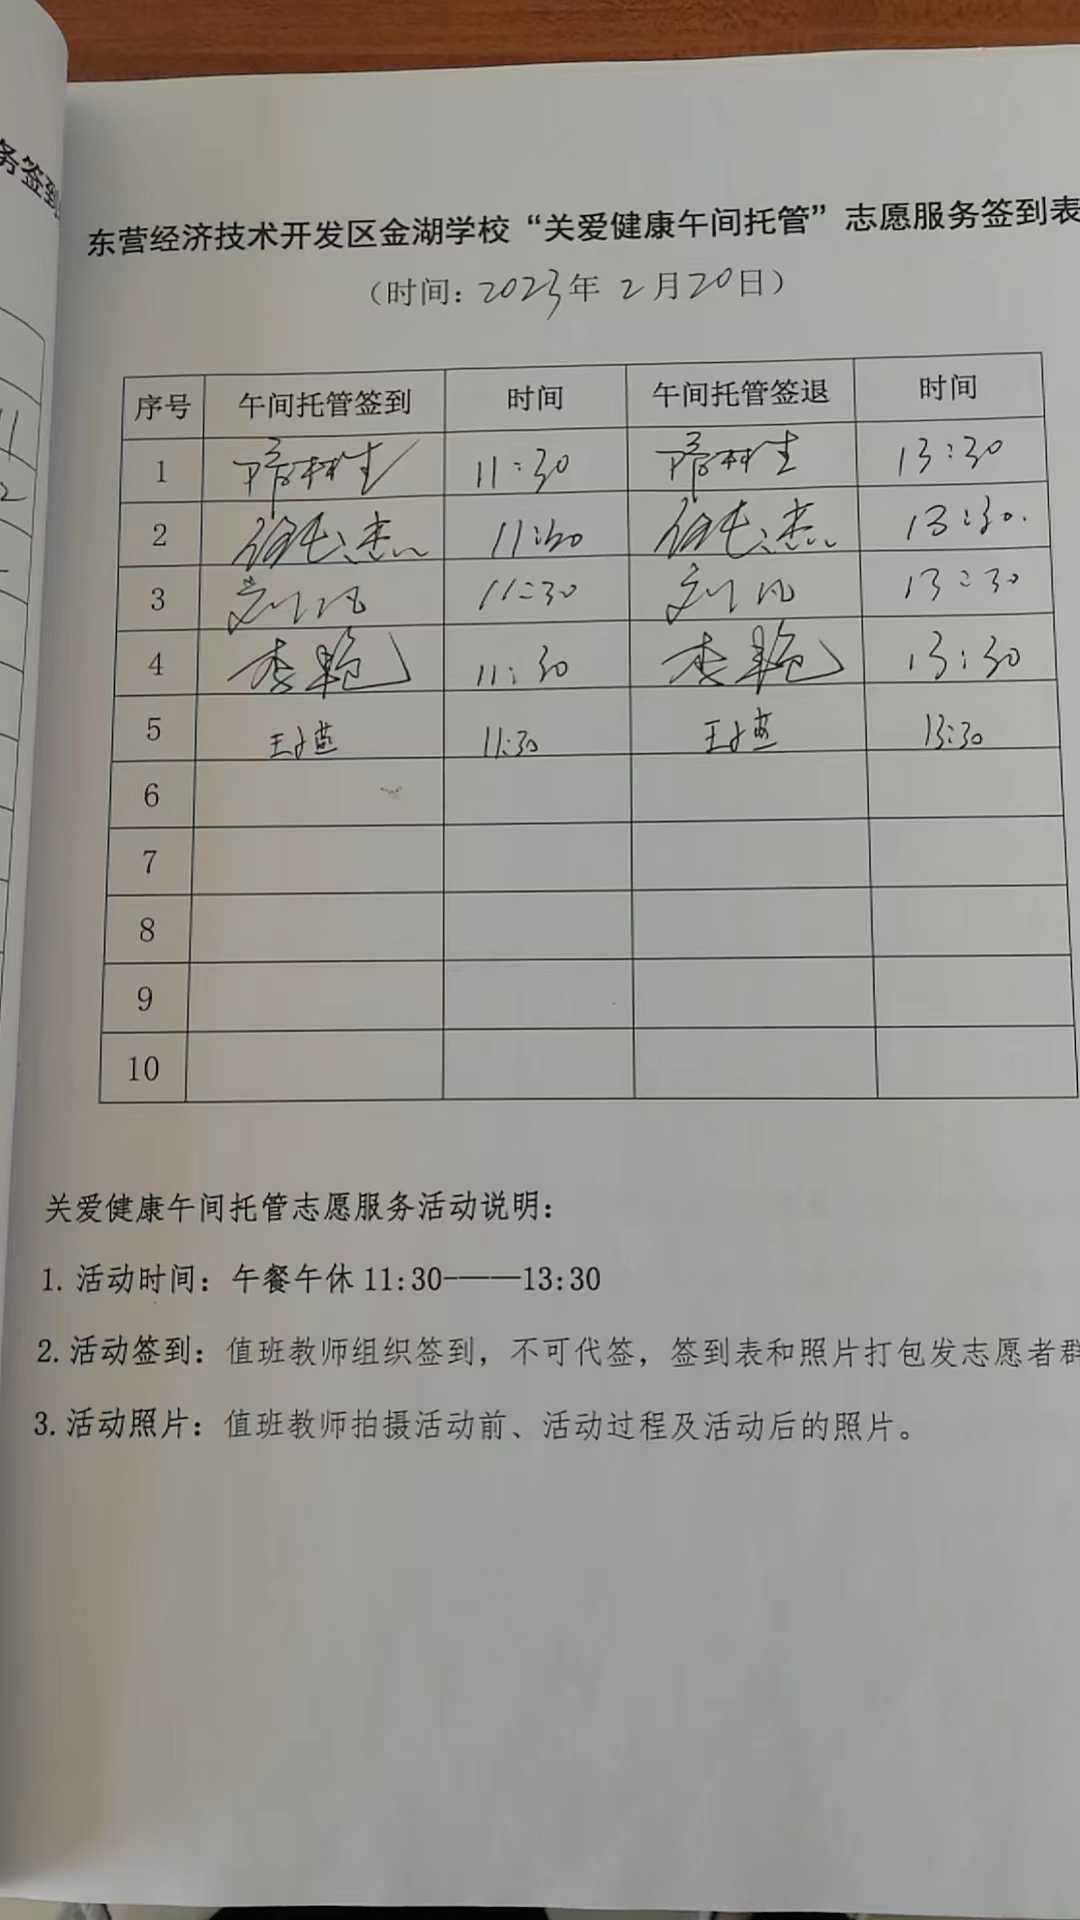 务签到
东营经济技术开发区金湖学校“关爱健康午间托管”志愿服务签到表
（时间：2023年 2月20日）
序号 午间托管签到 时间 午间托管签退 时间
1 11:30 13:30
2 11:30 13:30.
3 刘凡 11:30 刘凡 13:30
4 李艳 11:30 李艳 13:30
5 11:30 13:30
6
7
8
9
10
关爱健康午间托管志愿服务活动说明：
1. 活动时间：午餐午休 11:30-——13:30
2. 活动签到：值班教师组织签到，不可代签，签到表和照片打包发志愿者群
3. 活动照片：值班教师拍摄活动前、活动过程及活动后的照片。